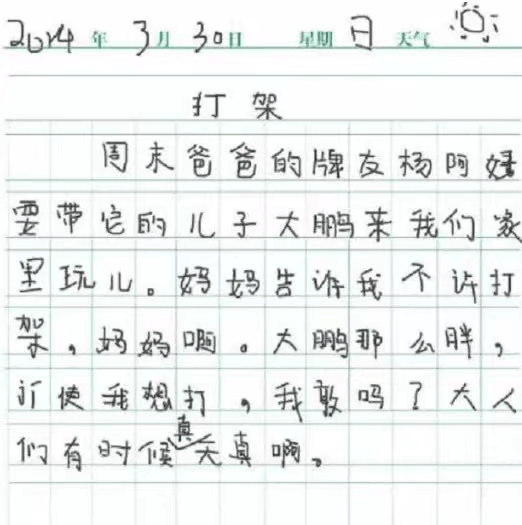 2014年 3月30日 星期日 天气
打架
周末爸爸的牌友杨阿姨
要带它的儿子大鹏来我们家
里玩儿。妈妈告诉我不许打
架，妈妈啊。大鹏那么胖，
即使我想打，我敢吗？大人
们有时候真天真啊。